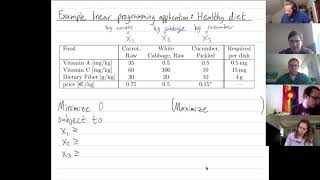 Example linear programming application: Healthy diet
kg carrots kg cabbage kg cucumber
x₁ x₂ x₃
Food Carrot, Raw White Cabbage, Raw Cucumber, Pickled Required per dish
Vitamin A [mg/kg] 35 0.5 0.5 0.5 mg
Vitamin C [mg/kg] 60 300 10 15 mg
Dietary Fiber [g/kg] 30 20 10 4 g
price [€/kg] 0.75 0.5 0.15*
Minimize 0 (Maximize
subject to
x₁ ≥
x₂ ≥
x₃ ≥